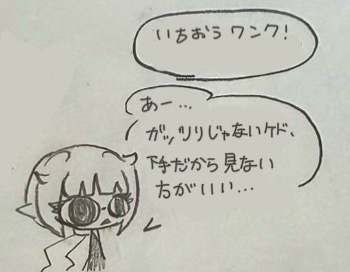 いちおうワンク!
あー…
ガッツリじゃないケド、
下手だから見ない
方がいい…